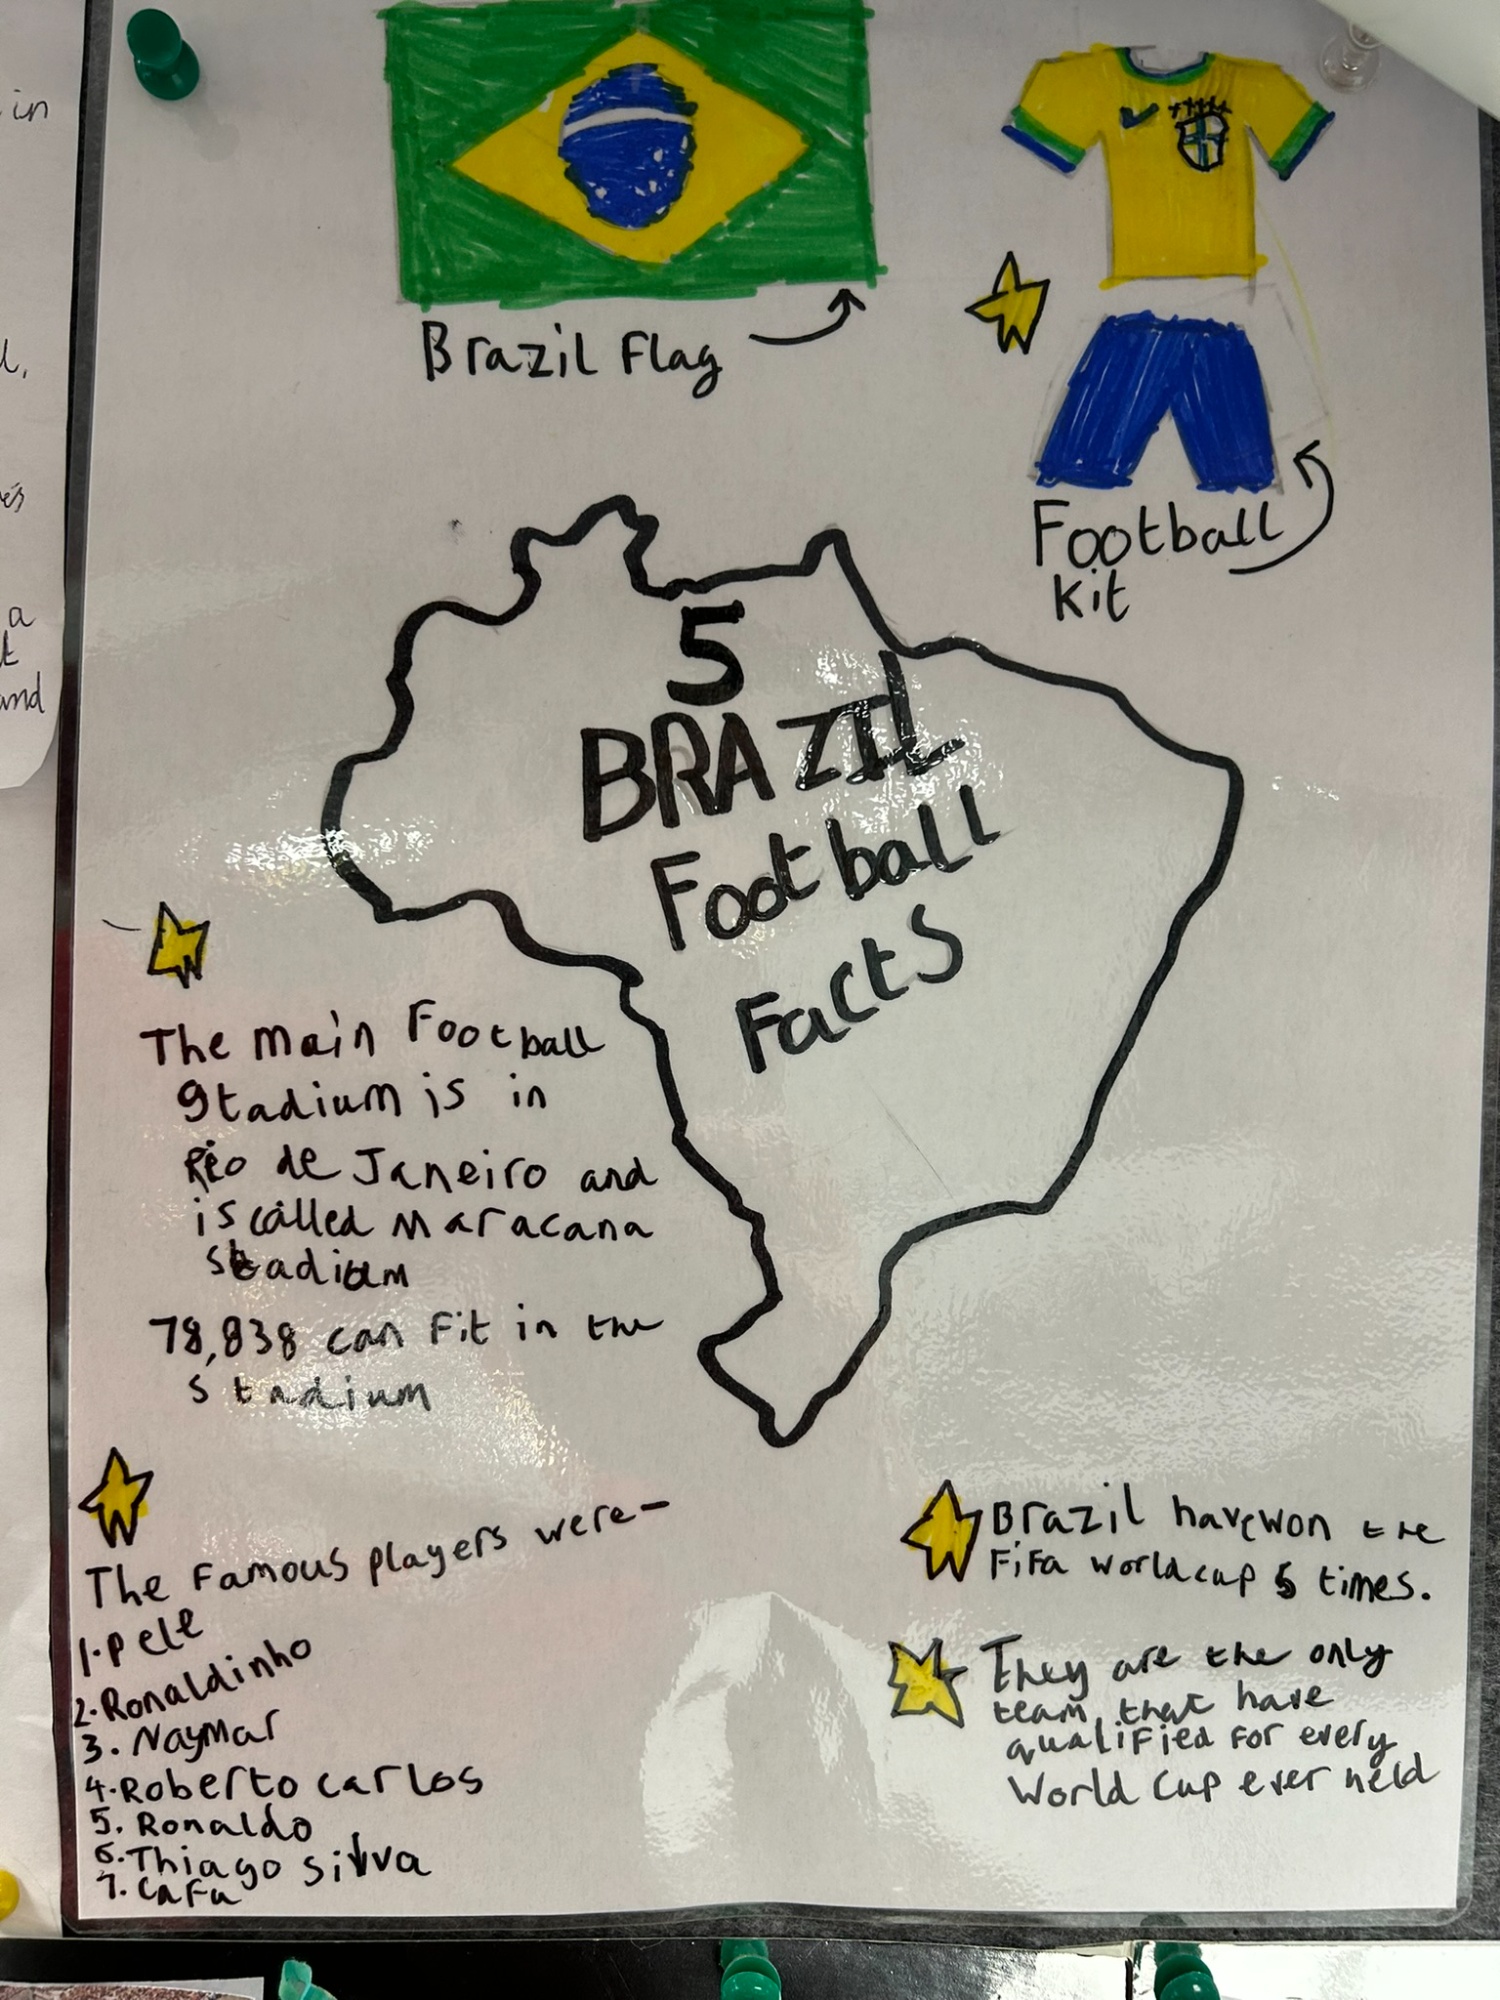 in
a
and
Brazil Flag
Football
Kit
5
BRAZIL
Football
Facts
The main Football
Stadium is in
Rio de Janeiro and
is called Maracana
stadium
78,838 can Fit in the
stadium
The Famous players were-
1. Pele
2. Ronaldinho
3. Naymar
4. Roberto carlos
5. Ronaldo
6. Thiago silva
7. Cafu
Brazil have won the
FiFa world cup 5 times.
They are the only
team that have
qualified For every
World Cup ever held